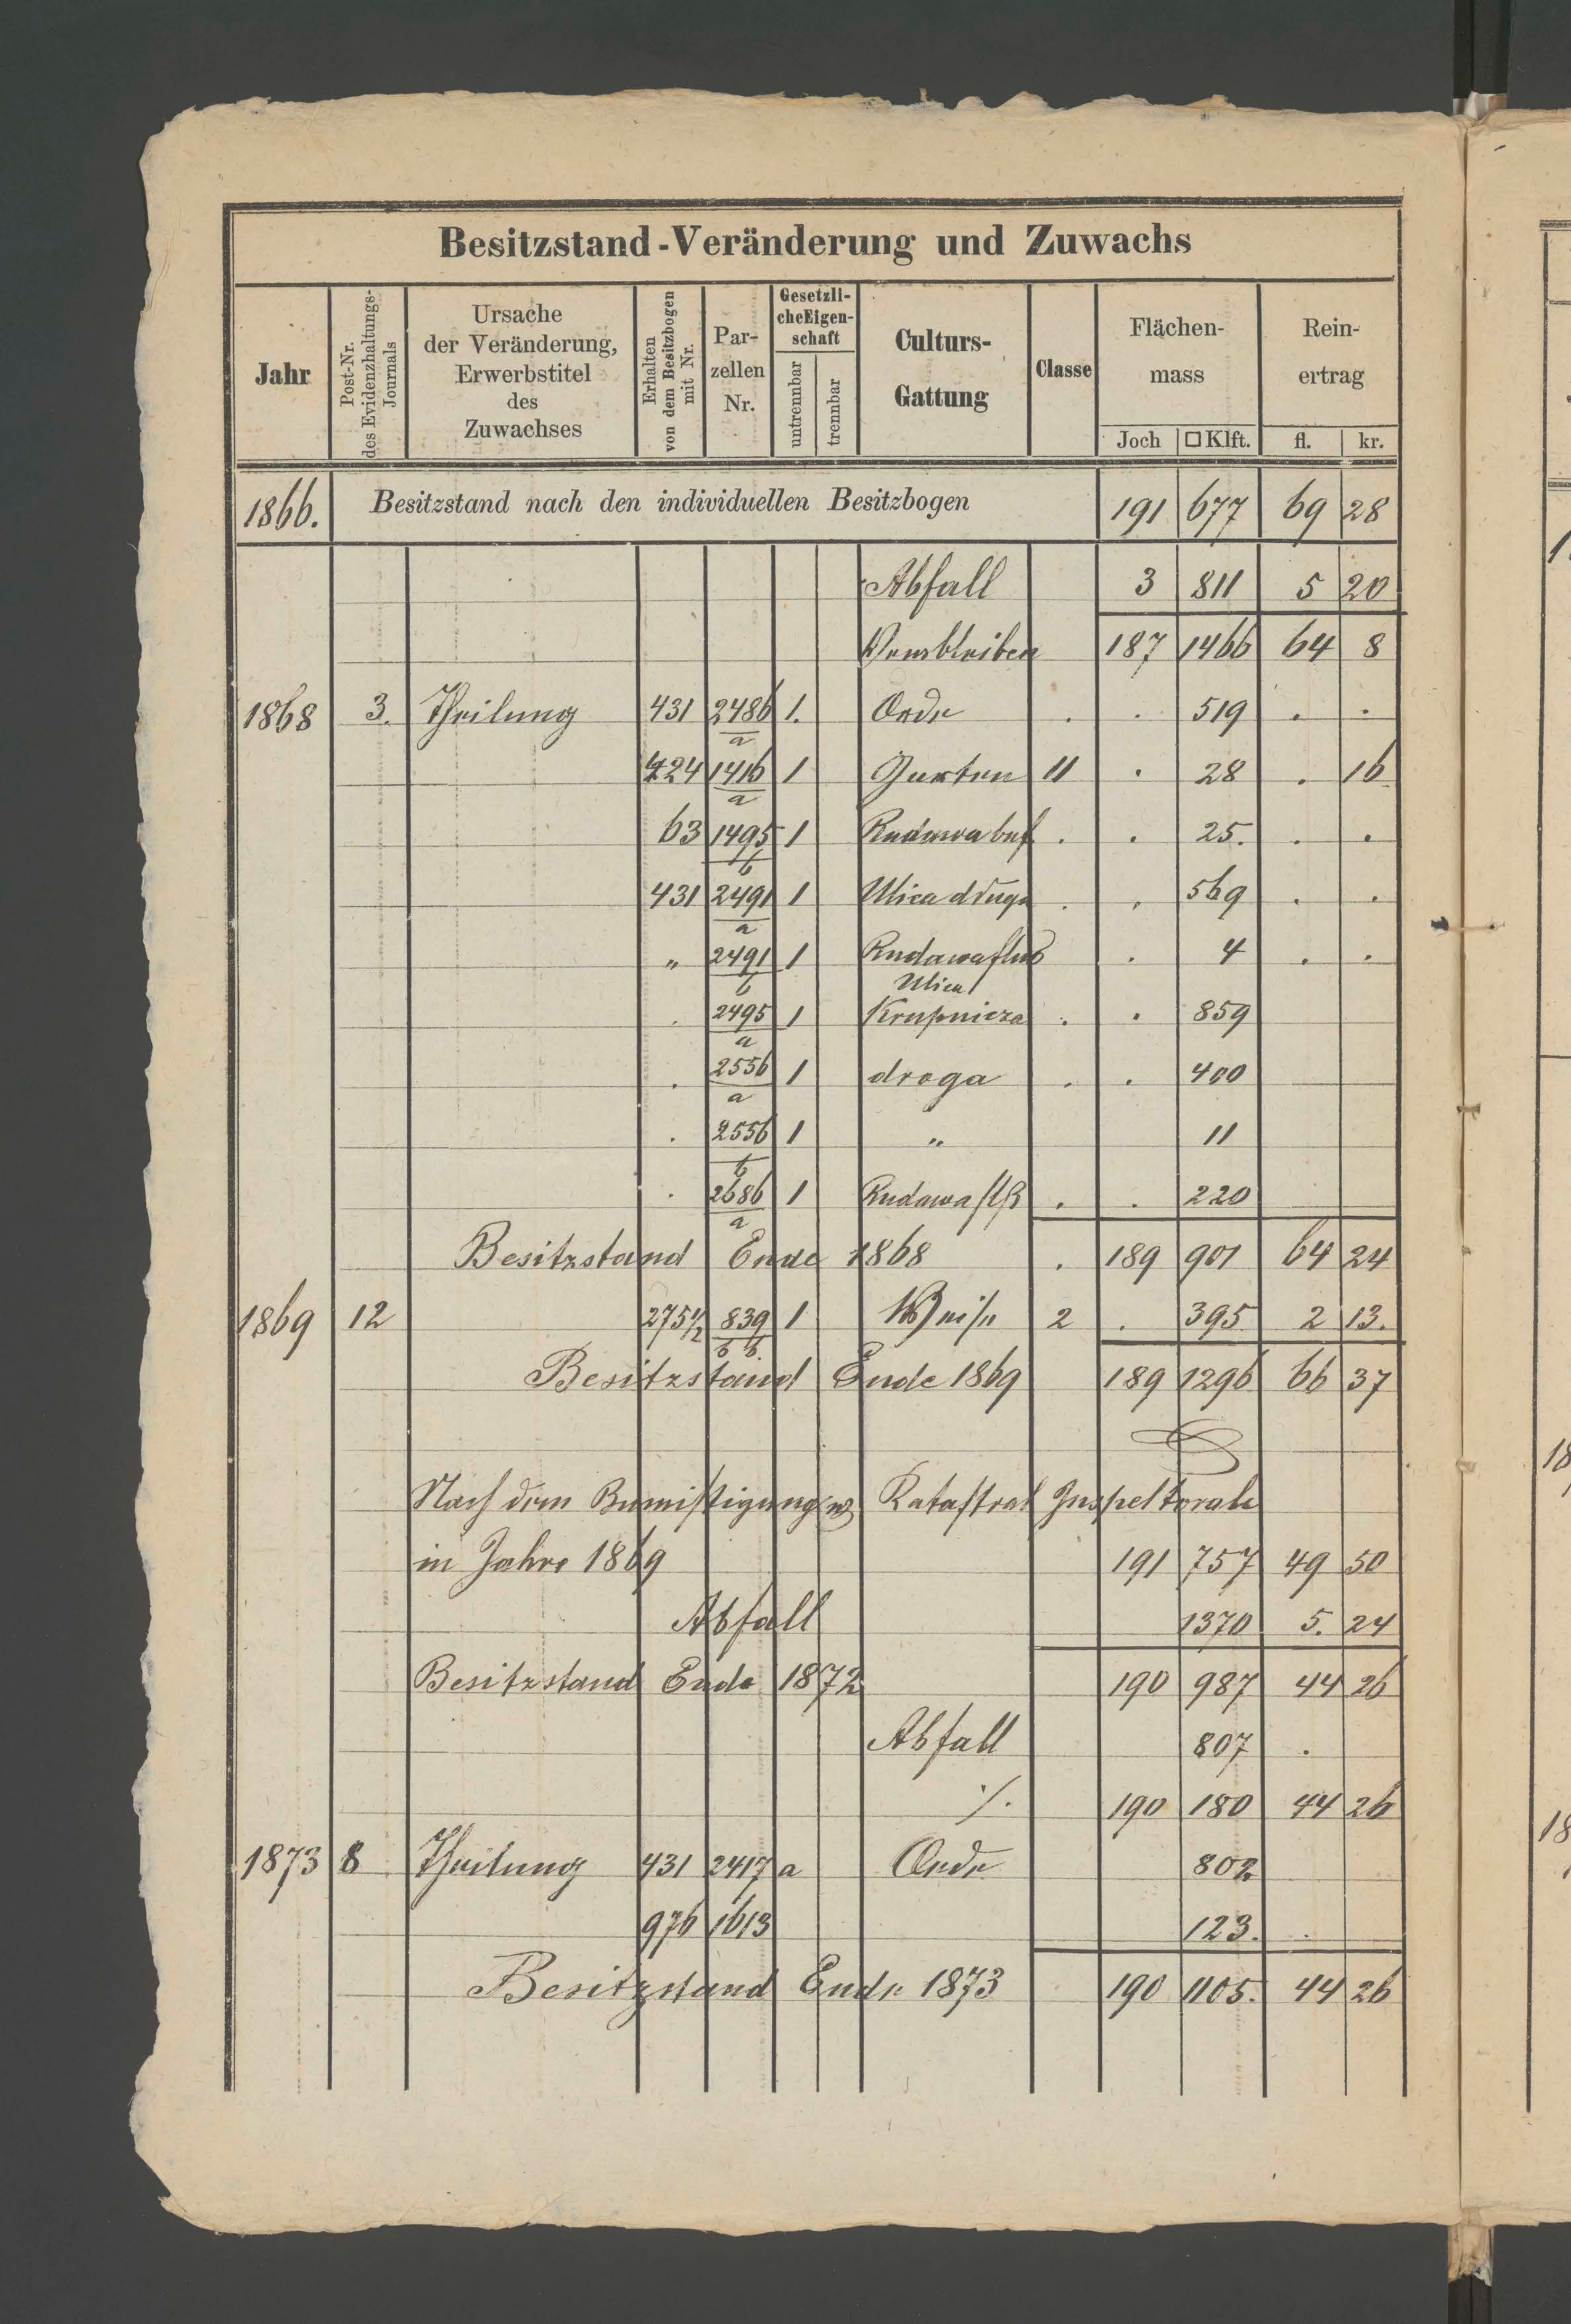 Besitzstand-Veränderung und Zuwachs
Jahr
Post-Nr.
des Evidenzhaltungs-
Journals
Ursache
der Veränderung,
Erwerbstitel
des
Zuwachses
Erhalten
von dem Besitzbogen
mit Nr.
Par-
zellen
Nr.
Gesetzli-
cheEigen-
schaft
untrennbar
trennbar
Culturs-
Gattung
Classe
Flächen-
mass
Joch □Klft.
Rein-
ertrag
fl. kr.
1866. Besitzstand nach den individuellen Besitzbogen 191 677 69 28
Abfall 3 811 5 20
187 1466 64 8
1868 3. Theilung 431 2486/a 1. Oede . . 519 . .
424 1416/a 1 Garten II . 28 . 16
63 1495/b 1 . . 25. . .
431 2491/a 1 Ulica długa . . 569 . .
„ 2491/b 1 Rudawafluß . 4 . .
. 2495/a 1 Ulica Krupnicza . . 859
. 2556/a 1 droga . . 400
. 2556/b 1 „ 11
. 2686/a 1 Rudawa flß . . 220
Besitzstand Ende 1868 . 189 901 64 24
1869 12 275 1/2 839/b b 1 2 . 395 2 13.
Besitzstand Ende 1869 189 1296 66 37
Nach dem Katastral Inspektorale
in Jahre 1869 191 757 49 50
Abfall 1370 5. 24
Besitzstand Ende 1872 190 987 44 26
Abfall 807 .
./. 190 180 44 26
1873 8 Theilung 431 2417 a Oede 802
976 1613 123. .
Besitzstand Ende 1873 190 1105. 44 26